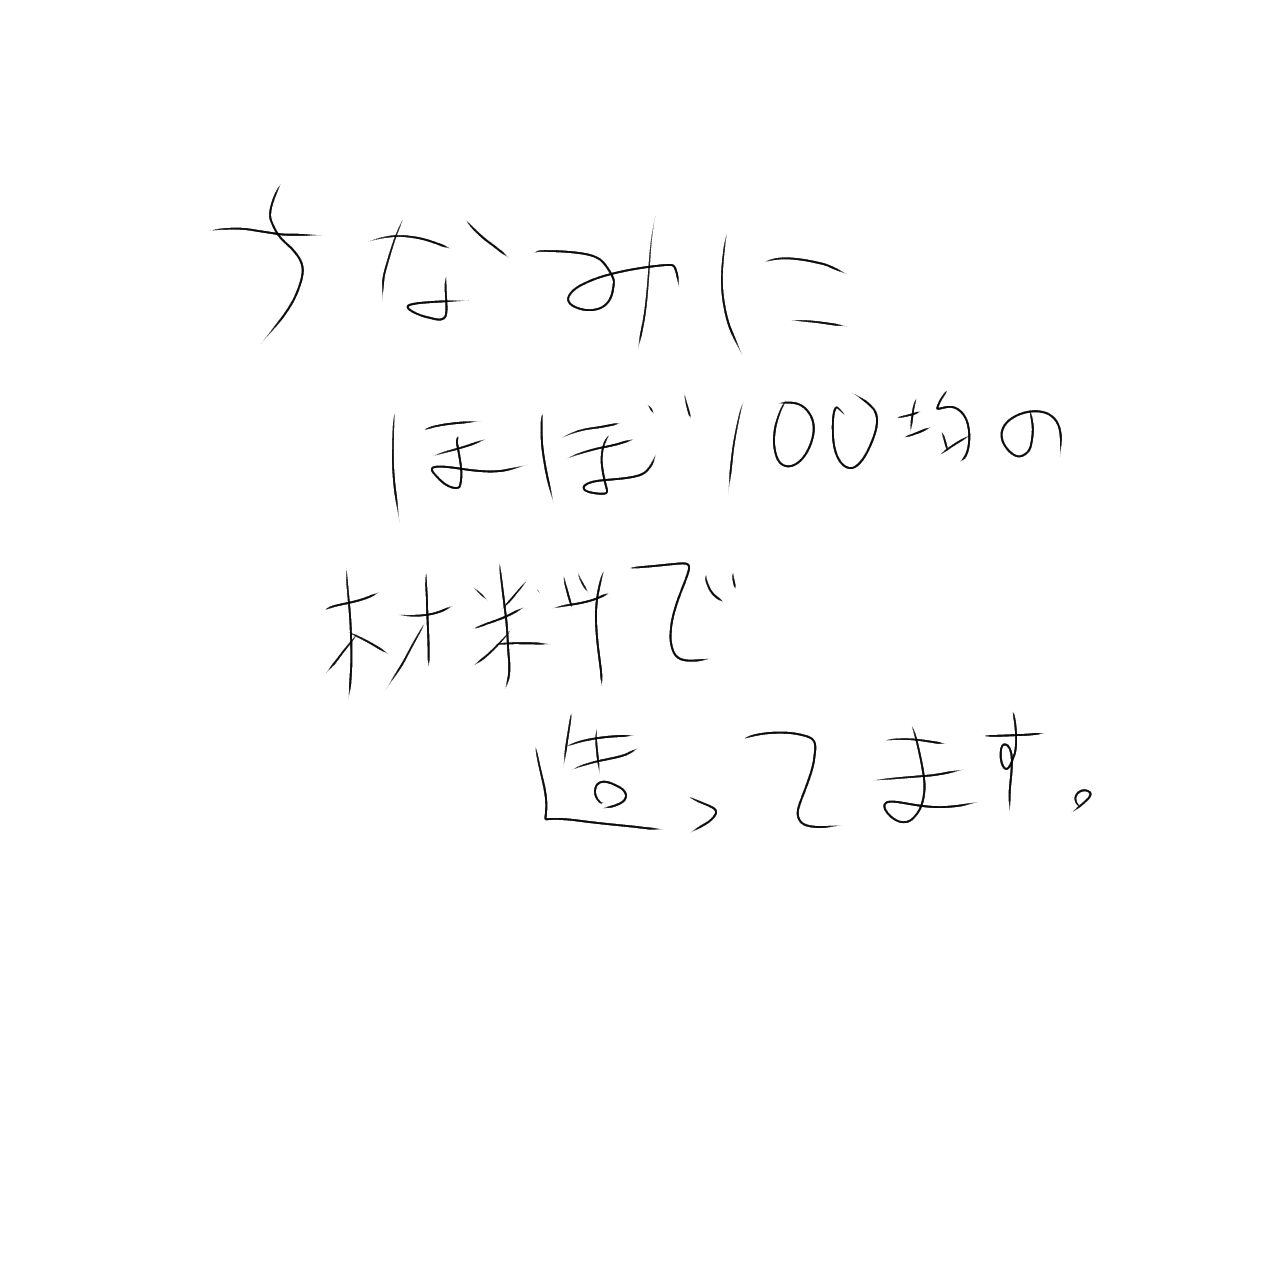 ちなみに
ほぼ100均の
材料で
造ってます。